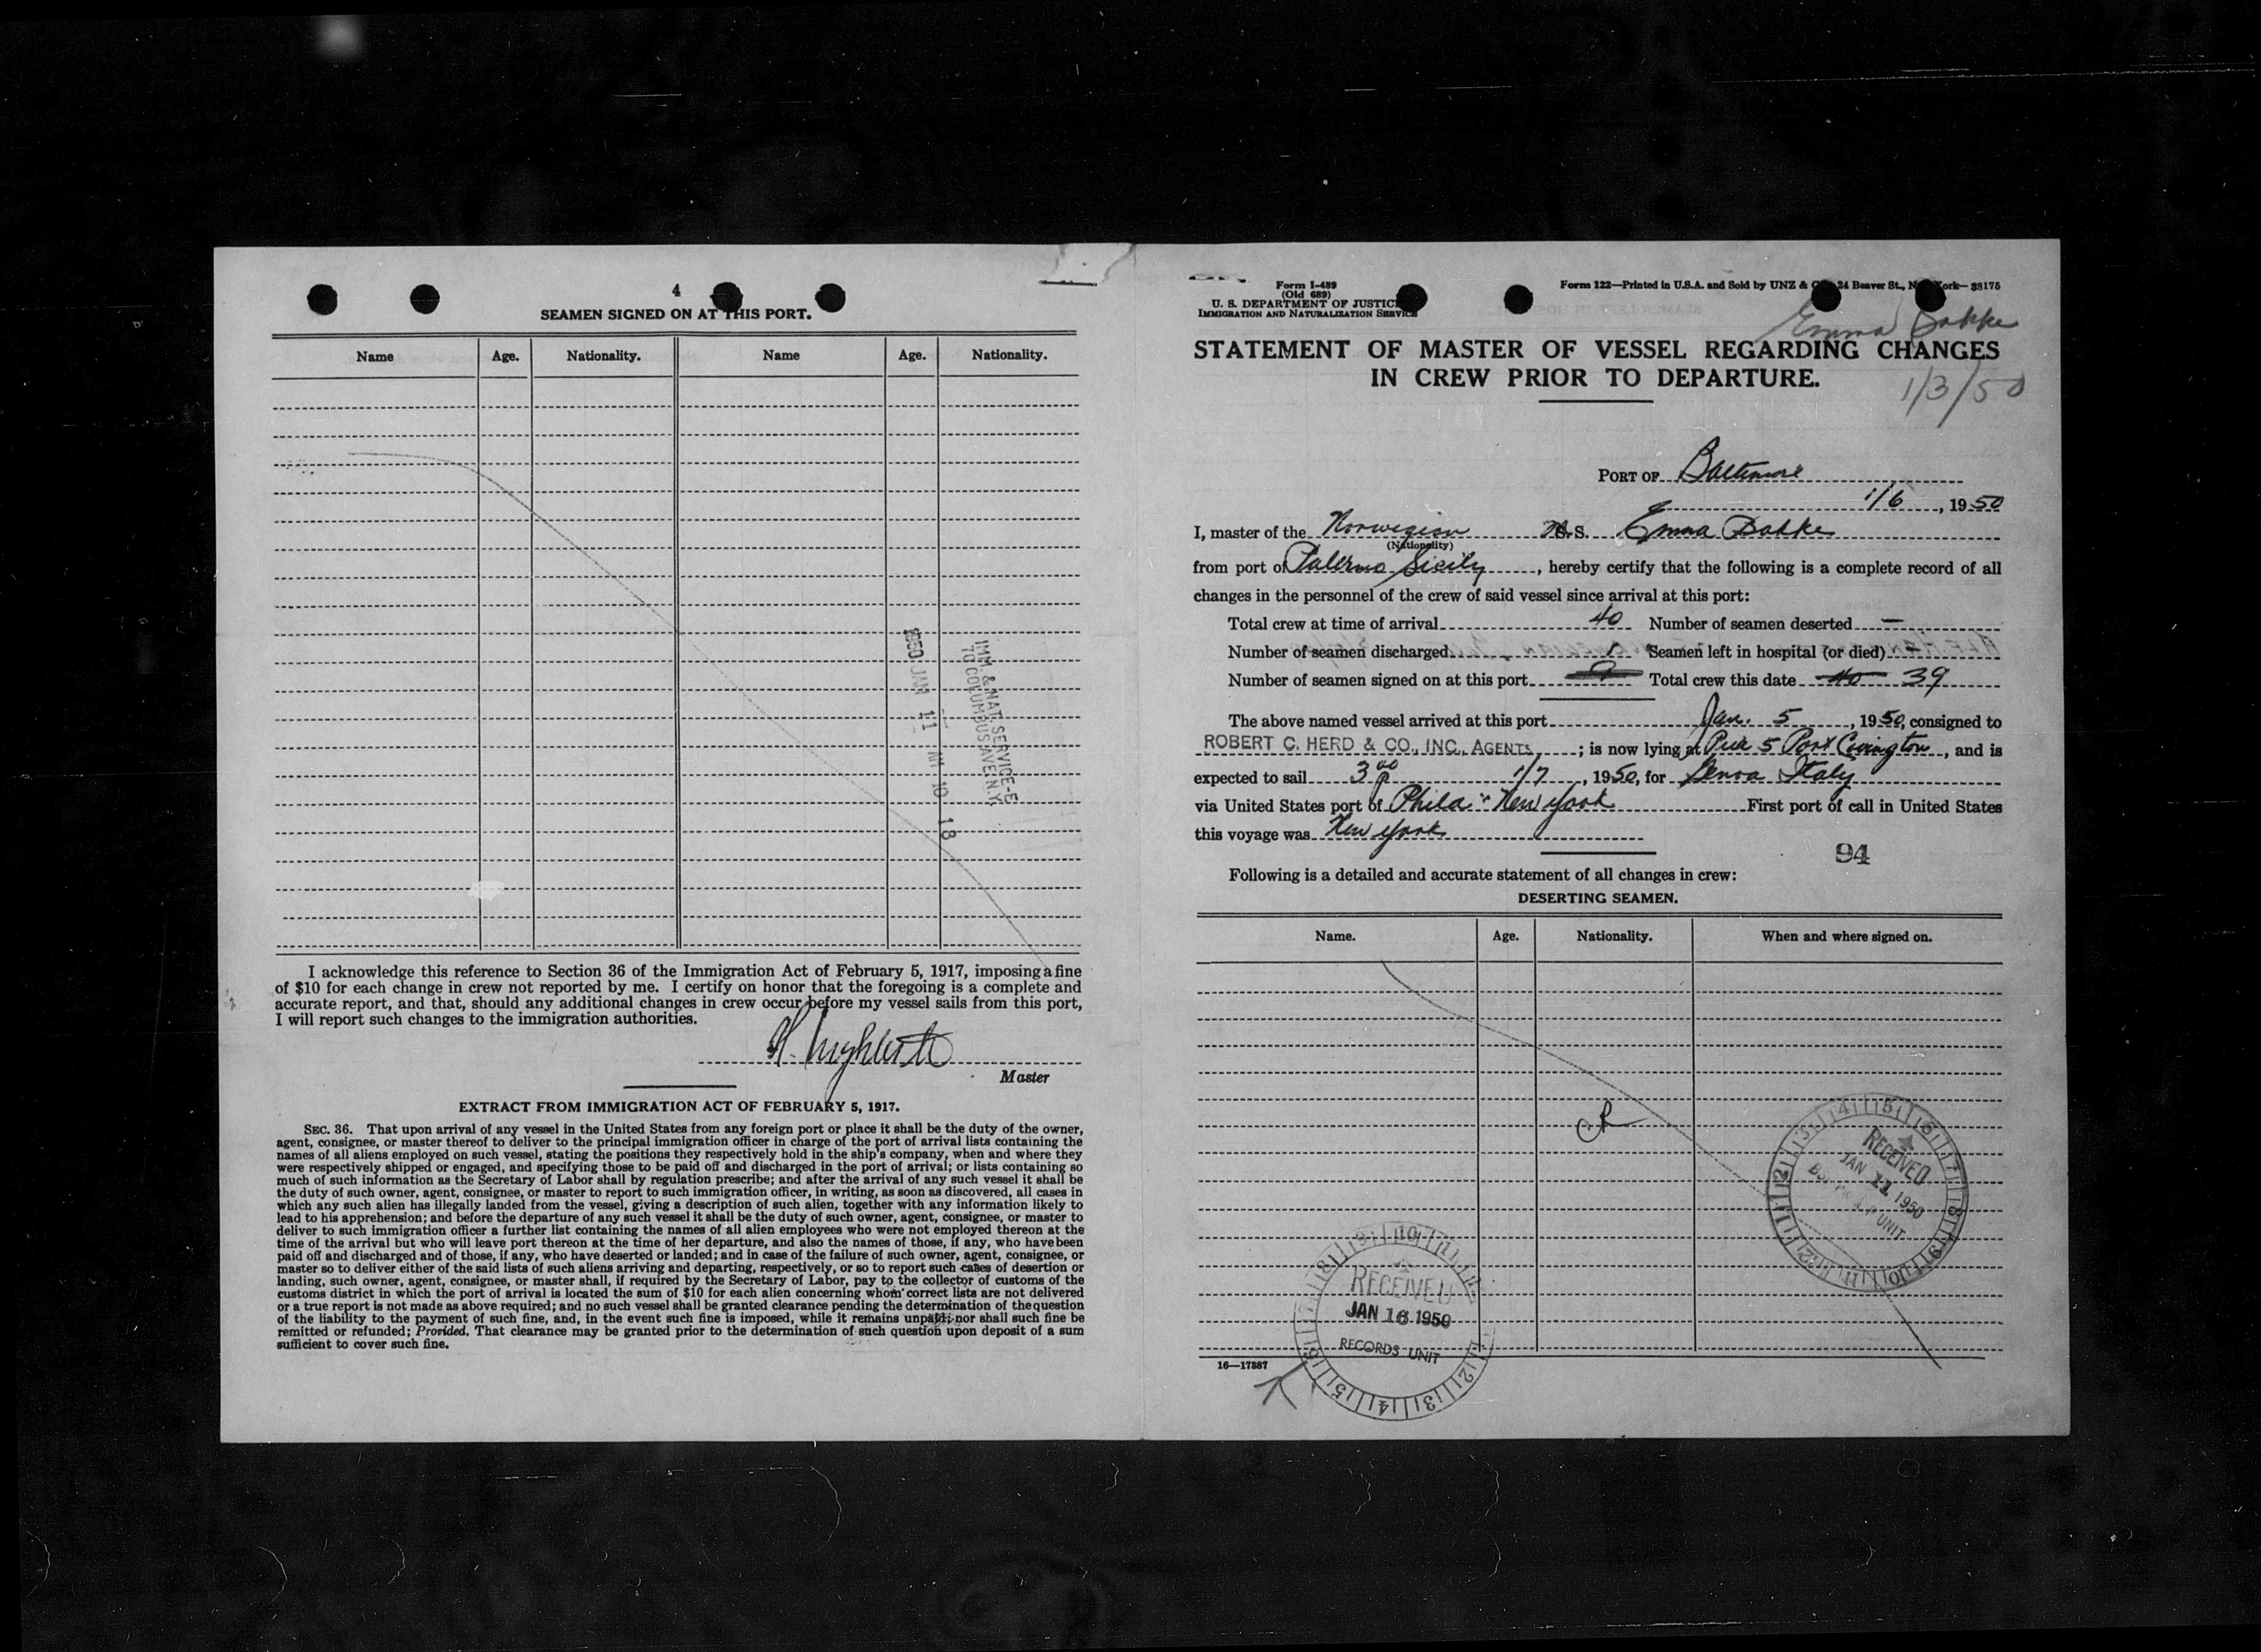 4
SEAMEN SIGNED ON AT THIS PORT.
Name Age. Nationality. Name Age. Nationality.
IMM & NAT. SERVICE-E
70 COLUMBUS AVE. N.Y.
1950 JAN 11 AM 10 18
I acknowledge this reference to Section 36 of the Immigration Act of February 5, 1917, imposing a fine
of $10 for each change in crew not reported by me. I certify on honor that the foregoing is a complete and
accurate report, and that, should any additional changes in crew occur before my vessel sails from this port,
I will report such changes to the immigration authorities.
Master
EXTRACT FROM IMMIGRATION ACT OF FEBRUARY 5, 1917.
SEC. 36. That upon arrival of any vessel in the United States from any foreign port or place it shall be the duty of the owner,
agent, consignee, or master thereof to deliver to the principal immigration officer in charge of the port of arrival lists containing the
names of all aliens employed on such vessel, stating the positions they respectively hold in the ship's company, when and where they
were respectively shipped or engaged, and specifying those to be paid off and discharged in the port of arrival; or lists containing so
much of such information as the Secretary of Labor shall by regulation prescribe; and after the arrival of any such vessel it shall be
the duty of such owner, agent, consignee, or master to report to such immigration officer, in writing, as soon as discovered, all cases in
which any such alien has illegally landed from the vessel, giving a description of such alien, together with any information likely to
lead to his apprehension; and before the departure of any such vessel it shall be the duty of such owner, agent, consignee, or master to
deliver to such immigration officer a further list containing the names of all alien employees who were not employed thereon at the
time of the arrival but who will leave port thereon at the time of her departure, and also the names of those, if any, who have been
paid off and discharged and of those, if any, who have deserted or landed; and in case of the failure of such owner, agent, consignee, or
master so to deliver either of the said lists of such aliens arriving and departing, respectively, or so to report such cases of desertion or
landing, such owner, agent, consignee, or master shall, if required by the Secretary of Labor, pay to the collector of customs of the
customs district in which the port of arrival is located the sum of $10 for each alien concerning whom correct lists are not delivered
or a true report is not made as above required; and no such vessel shall be granted clearance pending the determination of the question
of the liability to the payment of such fine, and, in the event such fine is imposed, while it remains unpaid; nor shall such fine be
remitted or refunded; Provided, That clearance may be granted prior to the determination of such question upon deposit of a sum
sufficient to cover such fine.
Form I-489
(Old 689)
U. S. DEPARTMENT OF JUSTICE
IMMIGRATION AND NATURALIZATION SERVICE
Form 122—Printed in U.S.A. and Sold by UNZ & 24 Beaver St., York—38175
Emma Bakke
STATEMENT OF MASTER OF VESSEL REGARDING CHANGES
IN CREW PRIOR TO DEPARTURE.
1/3/50
PORT OF Baltimore
1/6, 1950
I, master of the Norwegian M.S. Emma Bakke
(Nationality)
from port of Palermo Sicily, hereby certify that the following is a complete record of all
changes in the personnel of the crew of said vessel since arrival at this port:
Total crew at time of arrival 40 Number of seamen deserted —
Number of seamen discharged Seamen left in hospital (or died)
Number of seamen signed on at this port Total crew this date 40 39
The above named vessel arrived at this port Jan. 5, 1950, consigned to
ROBERT C. HERD & CO., INC., AGENTS; is now lying at Pier 5 Port Covington, and is
expected to sail 3 00 P 1/7, 1950, for Genoa Italy
via United States port of Phila. & New York First port of call in United States
this voyage was New York
94
Following is a detailed and accurate statement of all changes in crew:
DESERTING SEAMEN.
Name. Age. Nationality. When and where signed on.
RECEIVED
JAN 11 1950
UNIT
RECEIVED
JAN 16 1950
RECORDS UNIT
16—17887